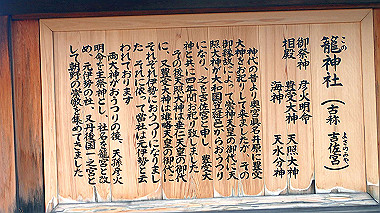 この
籠神社 (古称 吉佐宮)
よさのみや
御祭神 彦火明命
相殿 豊受大神 天照大神
海神 天水分神
神代の昔より奥宮眞名井原に豊受
大神をお祀りして来ましたが、その
御縁故によって崇神天皇の御代に天
照大神が大和国笠縫邑からおうつり
になり、之を吉佐宮と申し、豊受大
神と共に四年間お祀り致しました
その後天照大神は垂仁天皇の御代
に、又豊受大神は雄略天皇の御代に
それぞれ伊勢におうつりになりまし
た。それに依って当社は元伊勢と云
われております
両大神がおうつりの後、天孫彦火
明命を主祭神とし、社名を籠宮と改
め、元伊勢の社、又丹後国一之宮と
して朝野の崇敬を集めてきました